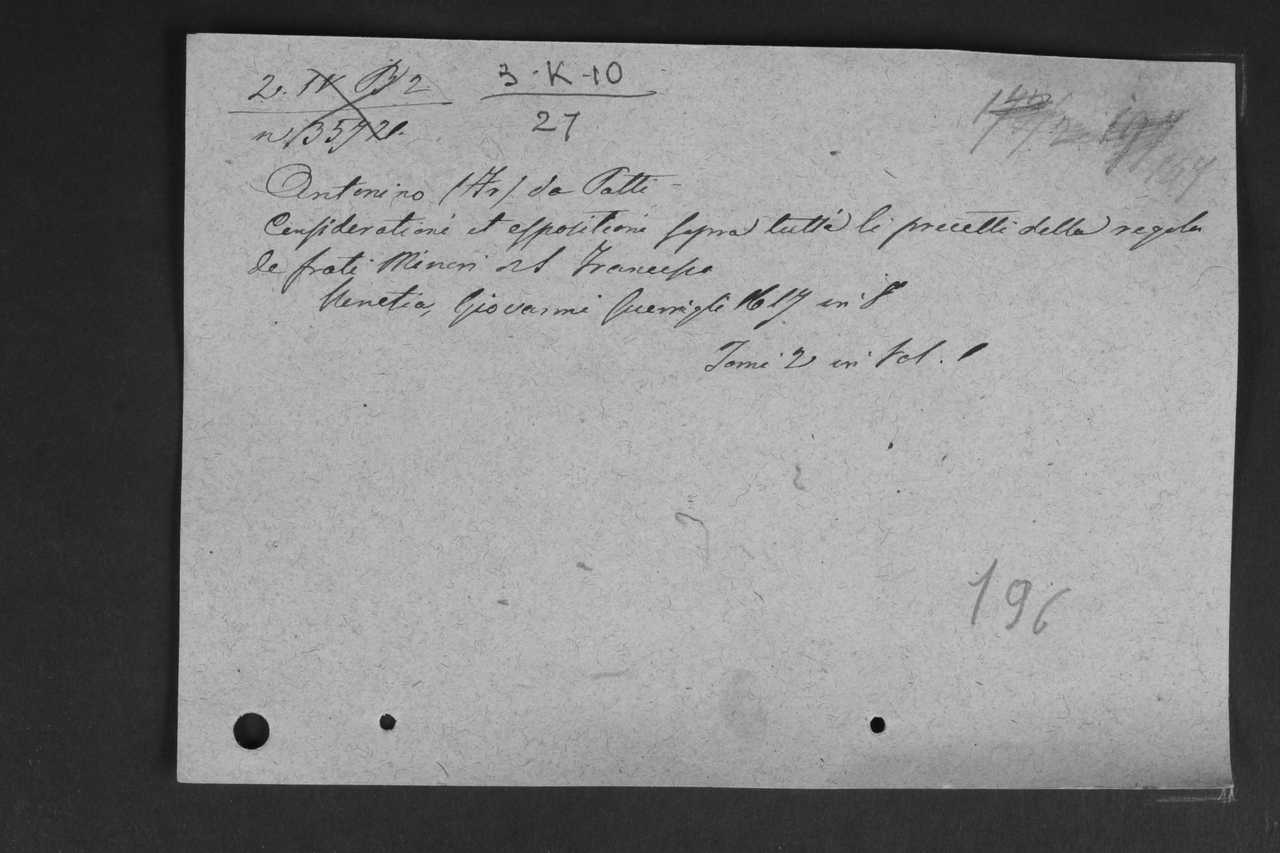 2. IV B 2
3-K-10
n. 13572.
27
Antonino (Fr) da Patti
Considerationi et espositioni sopra tutti li precetti della regola
de frati Minori di S. Francesco
Venetia, Giovanni Guerrigli 1617 in 8°
Tomi 2 in Vol. 1
196